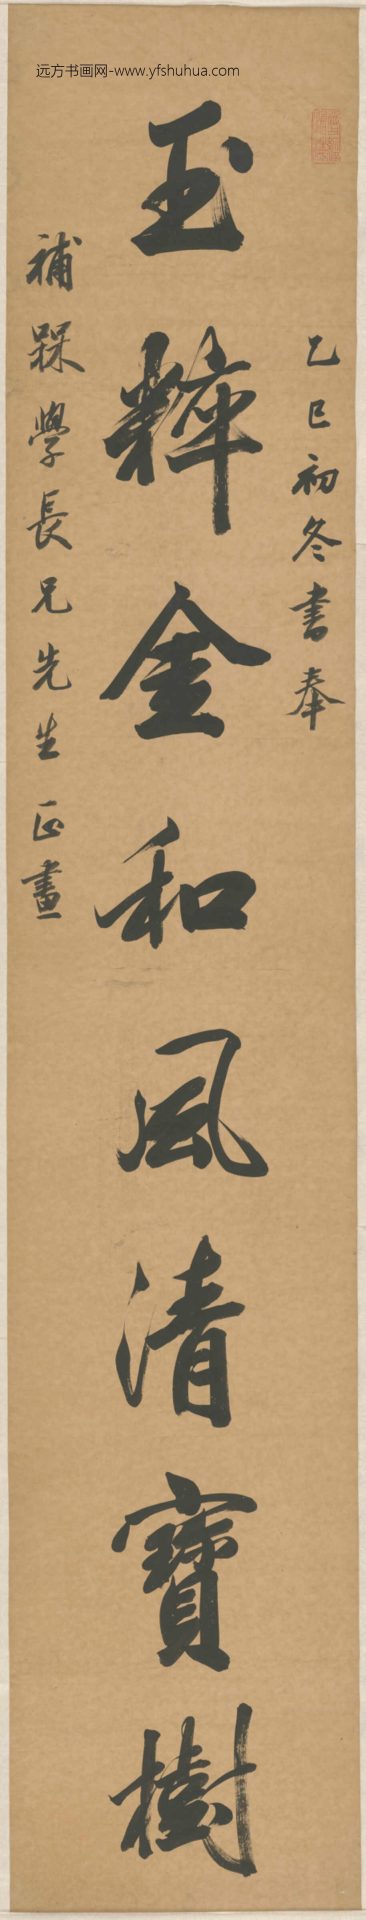 远方书画网-www.yfshuhua.com
乙巳初冬書奉
玉粹金和風清寶樹
補槑學長兄先生正畫